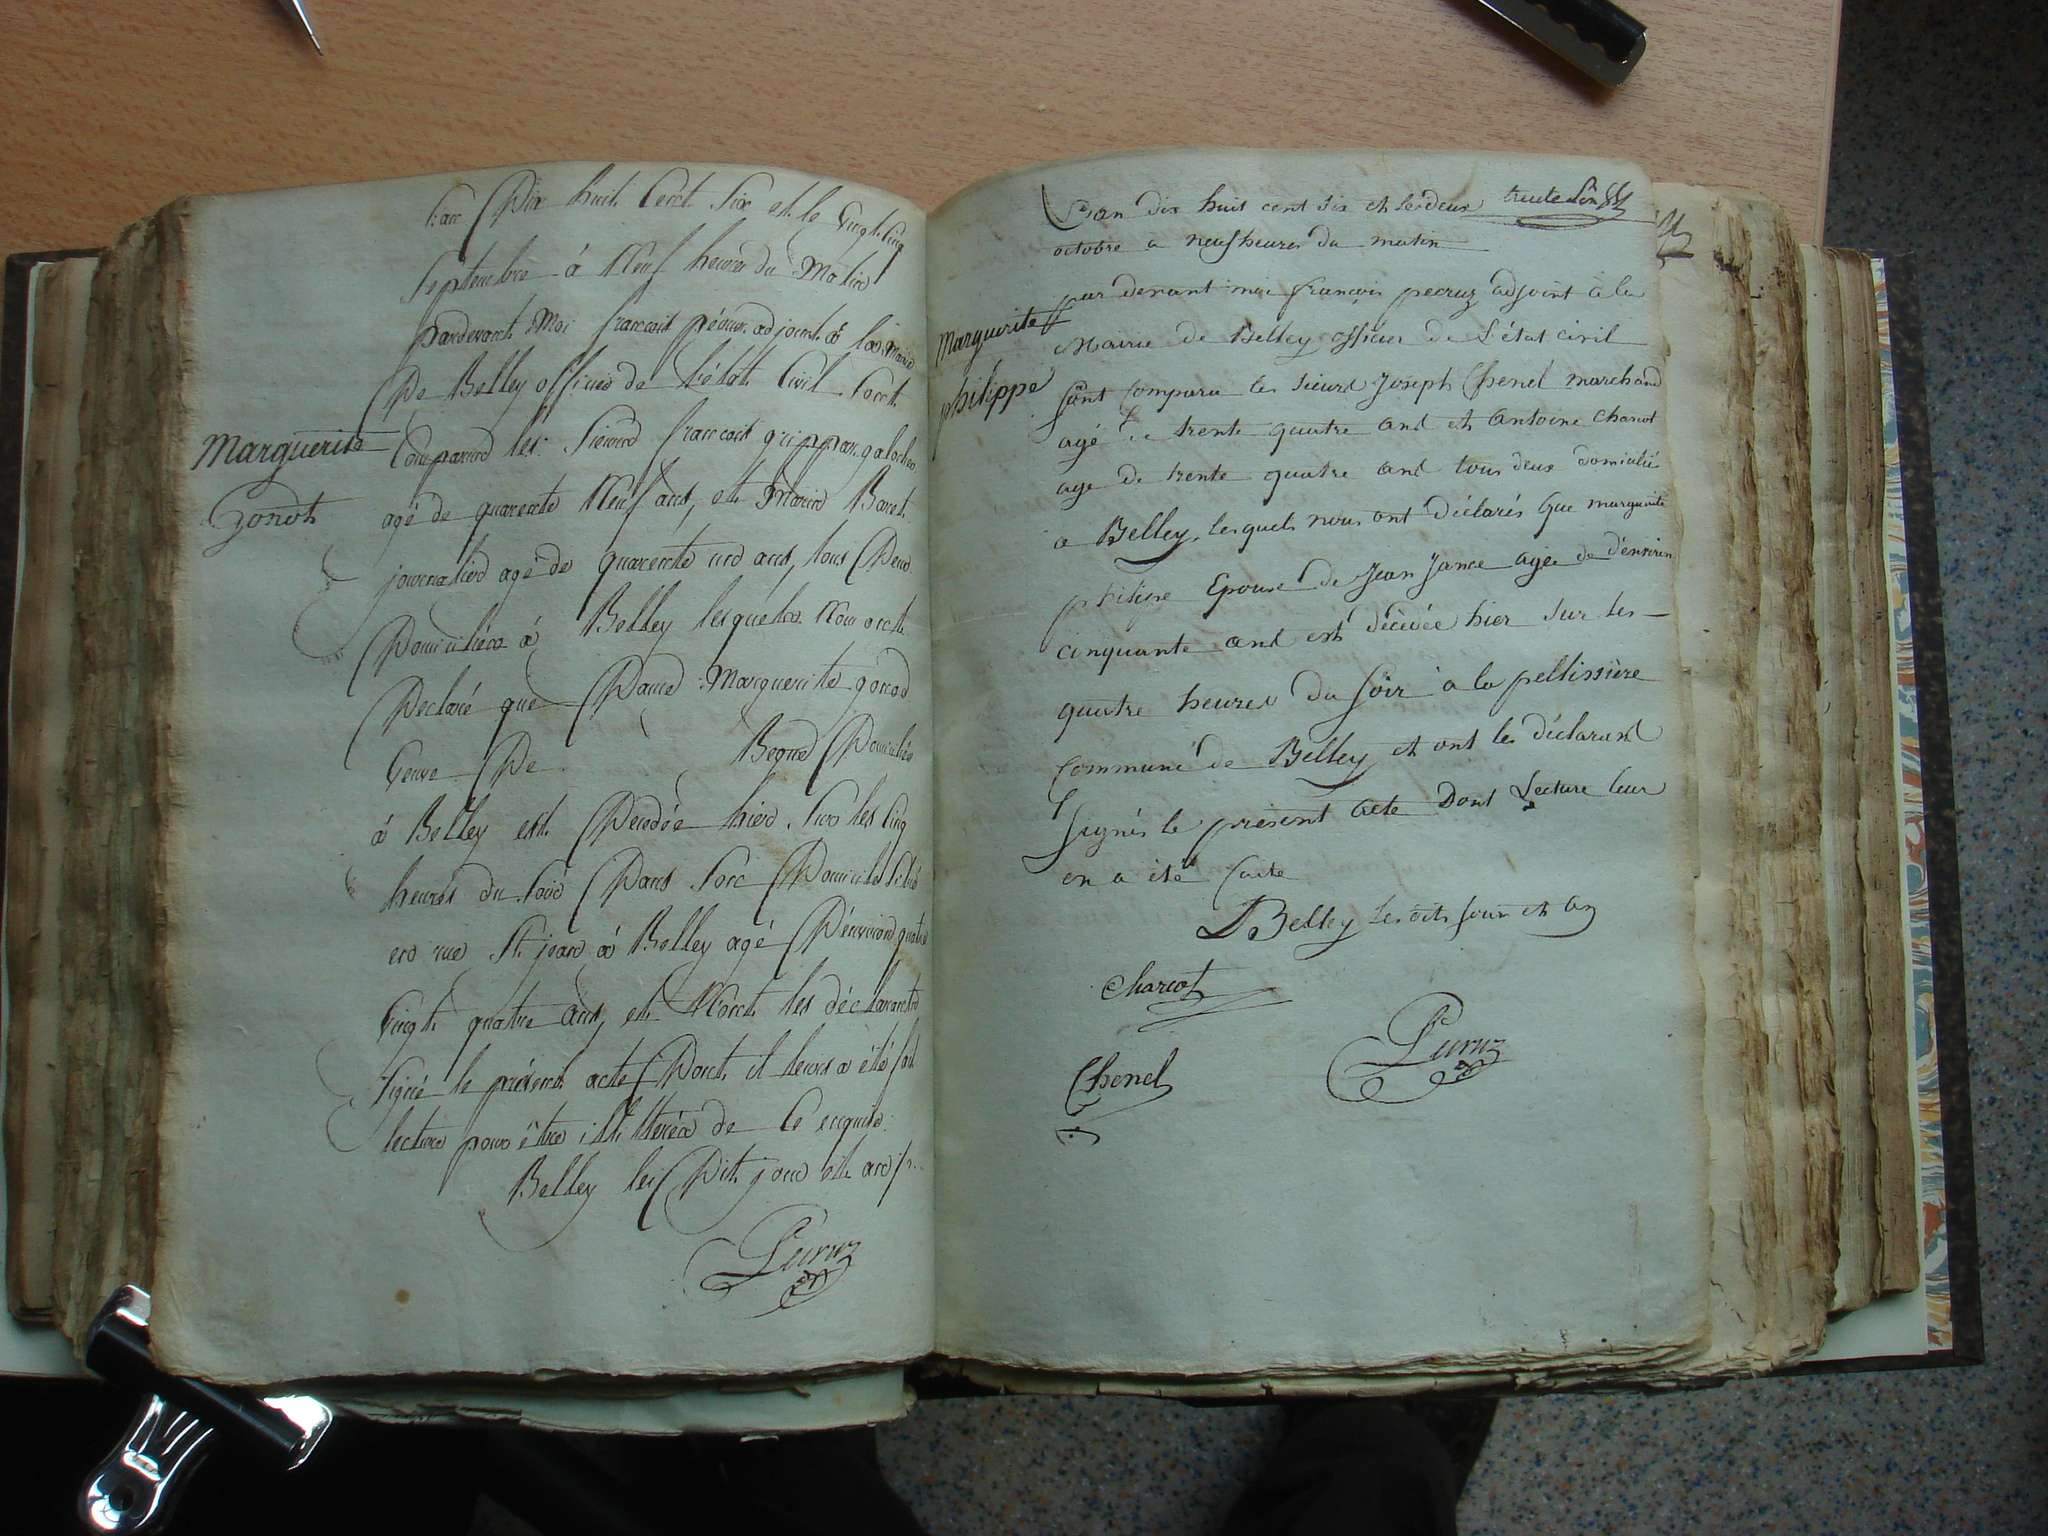 L'an Dix huit Cent Six et le Vingt Cinq
Septembre à Neuf heures du Matin
Pardevant Moi francois Pécruz adjoint à la Mairie
De Belley officier de l'état Civil Sont
Marguerite
Comparus les Sieurs francois
gonot
agé de quarente Neuf ans, et Marin Baret
journalier agé de quarente un ans, tous Deux
Domiciliés à Belley lesquels Nous ont
Declaré que Dame Marguerite gonod
Veuve De Begue Domiciliée
à Belley est Decedée hier Sur les Cinq
heures du Soir Dans Son Domicile Situé
en rue St jean à Belley agé D'environ quatre
Vingt quatre ans, et N'ont les déclarants
Signé le présent acte Dont il leurs a été fait
lecture pour être illiterés de Ce enquis
Belley les Dit jour et an
Pecruz
trente Six
L'an dix huit cent six et le deux
octobre a neuf heures du matin
par devant moi françois pecruz adjoint à la
Marguerite
Mairie de Belley officier de L'état civil
philippe
Sont Comparu les sieurs Joseph Chenel marchand
agé de trente quatre ans et Antoine Charcot
age de trente quatre ans tous deux domicilié
a Belley, lesquels nous ont déclarés que marguerite
philippe Epouse de Jean Jance agée de d'environ
cinquante ans est décédée hier sur les
quatre heures du soir à la pellissière
Commune de Belley et ont les déclarans
signés le présent acte Dont Lecture leur
en a été faite
Belley les dits jour et an
Charcot
Pecruz
Chenel